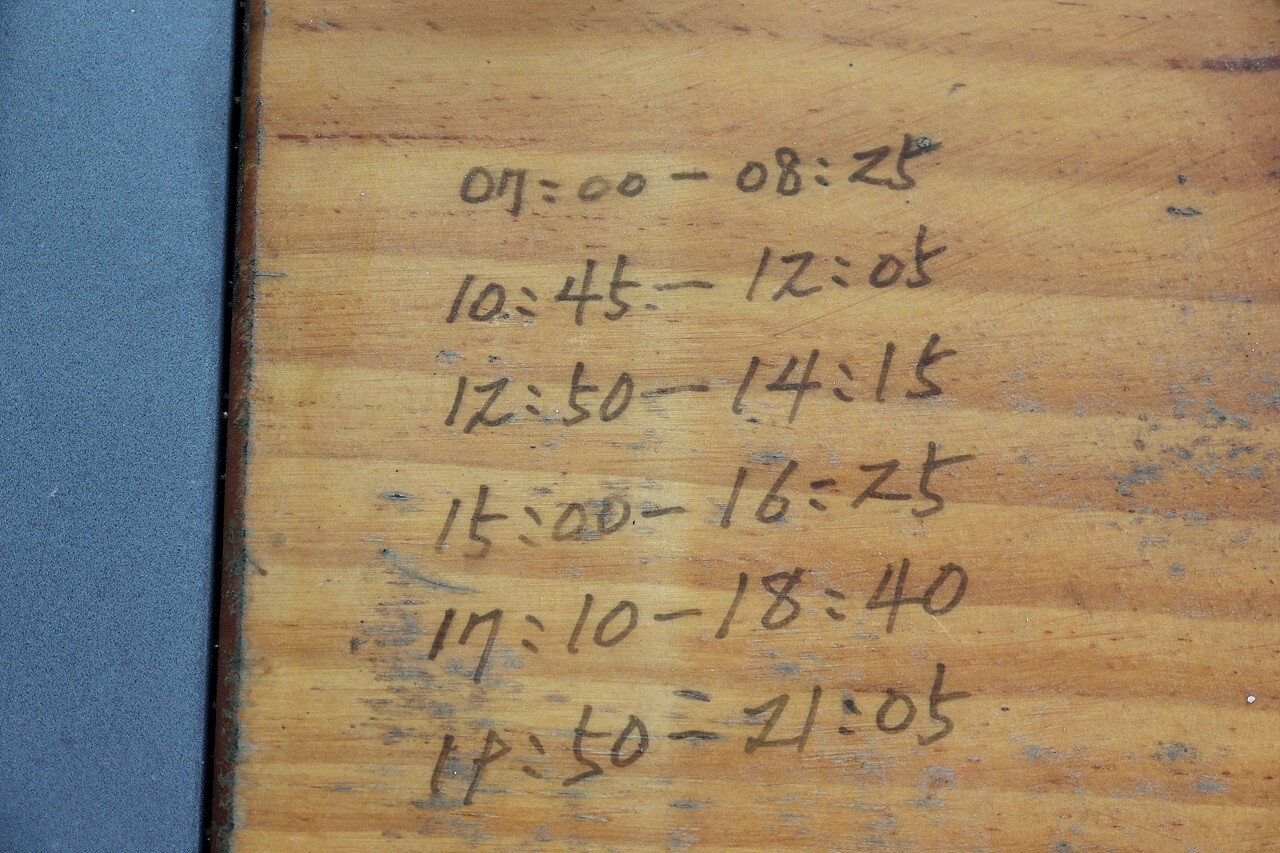 07:00-08:25
10:45-12:05
12:50-14:15
15:00-16:25
17:10-18:40
19:50-21:05